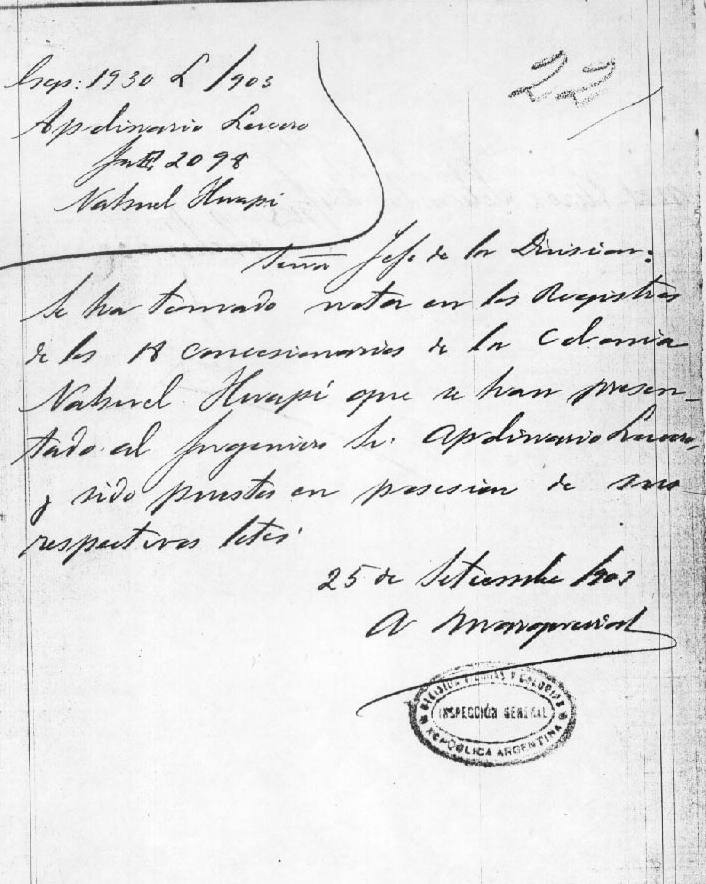 Exp: 1930 L /903
22
Apolinario Lucero
2098
Nahuel Huapi
Señor Jefe de la Division:
Se ha tomado nota en los Registros
de los 18 concesionarios de la Colonia
Nahuel Huapi que se han presen-
tado al Ingeniero Sr. Apolinario Lucero,
y sido puestos en posesion de sus
respectivos lotes
25 de Setiembre /903
A
DIVISION TIERRAS Y COLONIAS
INSPECCIÓN GENERAL
REPÚBLICA ARGENTINA